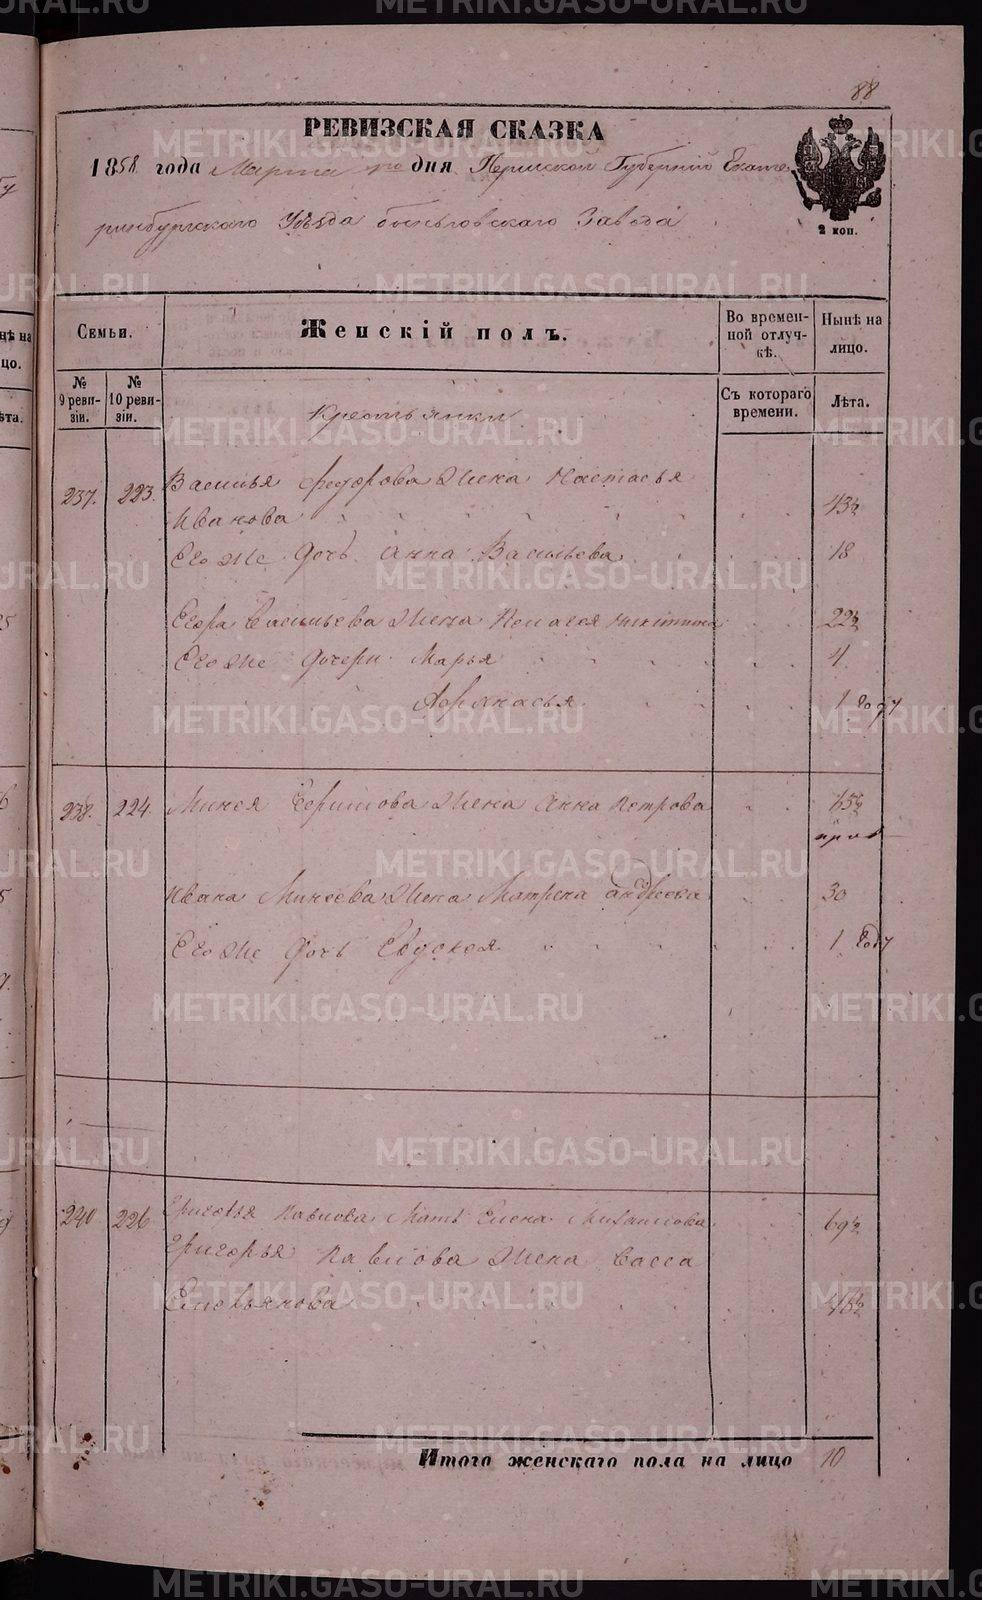 METRIKI.GASO-URAL.RU
88
РЕВИЗСКАЯ СКАЗКА
1858 года Марта дня Пермской Губерніи Екате
ринбургскаго Уѣзда Заведа
2 коп.
Семьи.
Женскій полъ.
Во времен-
ной отлуч-
кѣ.
Нынѣ на
лицо.
№
9 реви-
зіи.
№
10 реви-
зіи.
Съ котораго
времени.
Лѣта.
Крестьянки
237. 223. Василья Федорова Жена Настасья
Иванова 43½
Его же Дочь Анна Васильева 18
Егора Васильева Жена Пелагея Никитина 22½
Его же Дочери Марья 4
Афонасья 1 году
238. 224. Минея Ефимова Жена Анна Петрова
Ивана Минеева Жена Матрена Андреева 30
Его же Дочь Евдокея 1 году
240 226 Григорья Павлова Мать Елена Михайлова 69½
Григорья Павлова Жена Васса
Емельянова
Итого женскаго пола на лицо 10